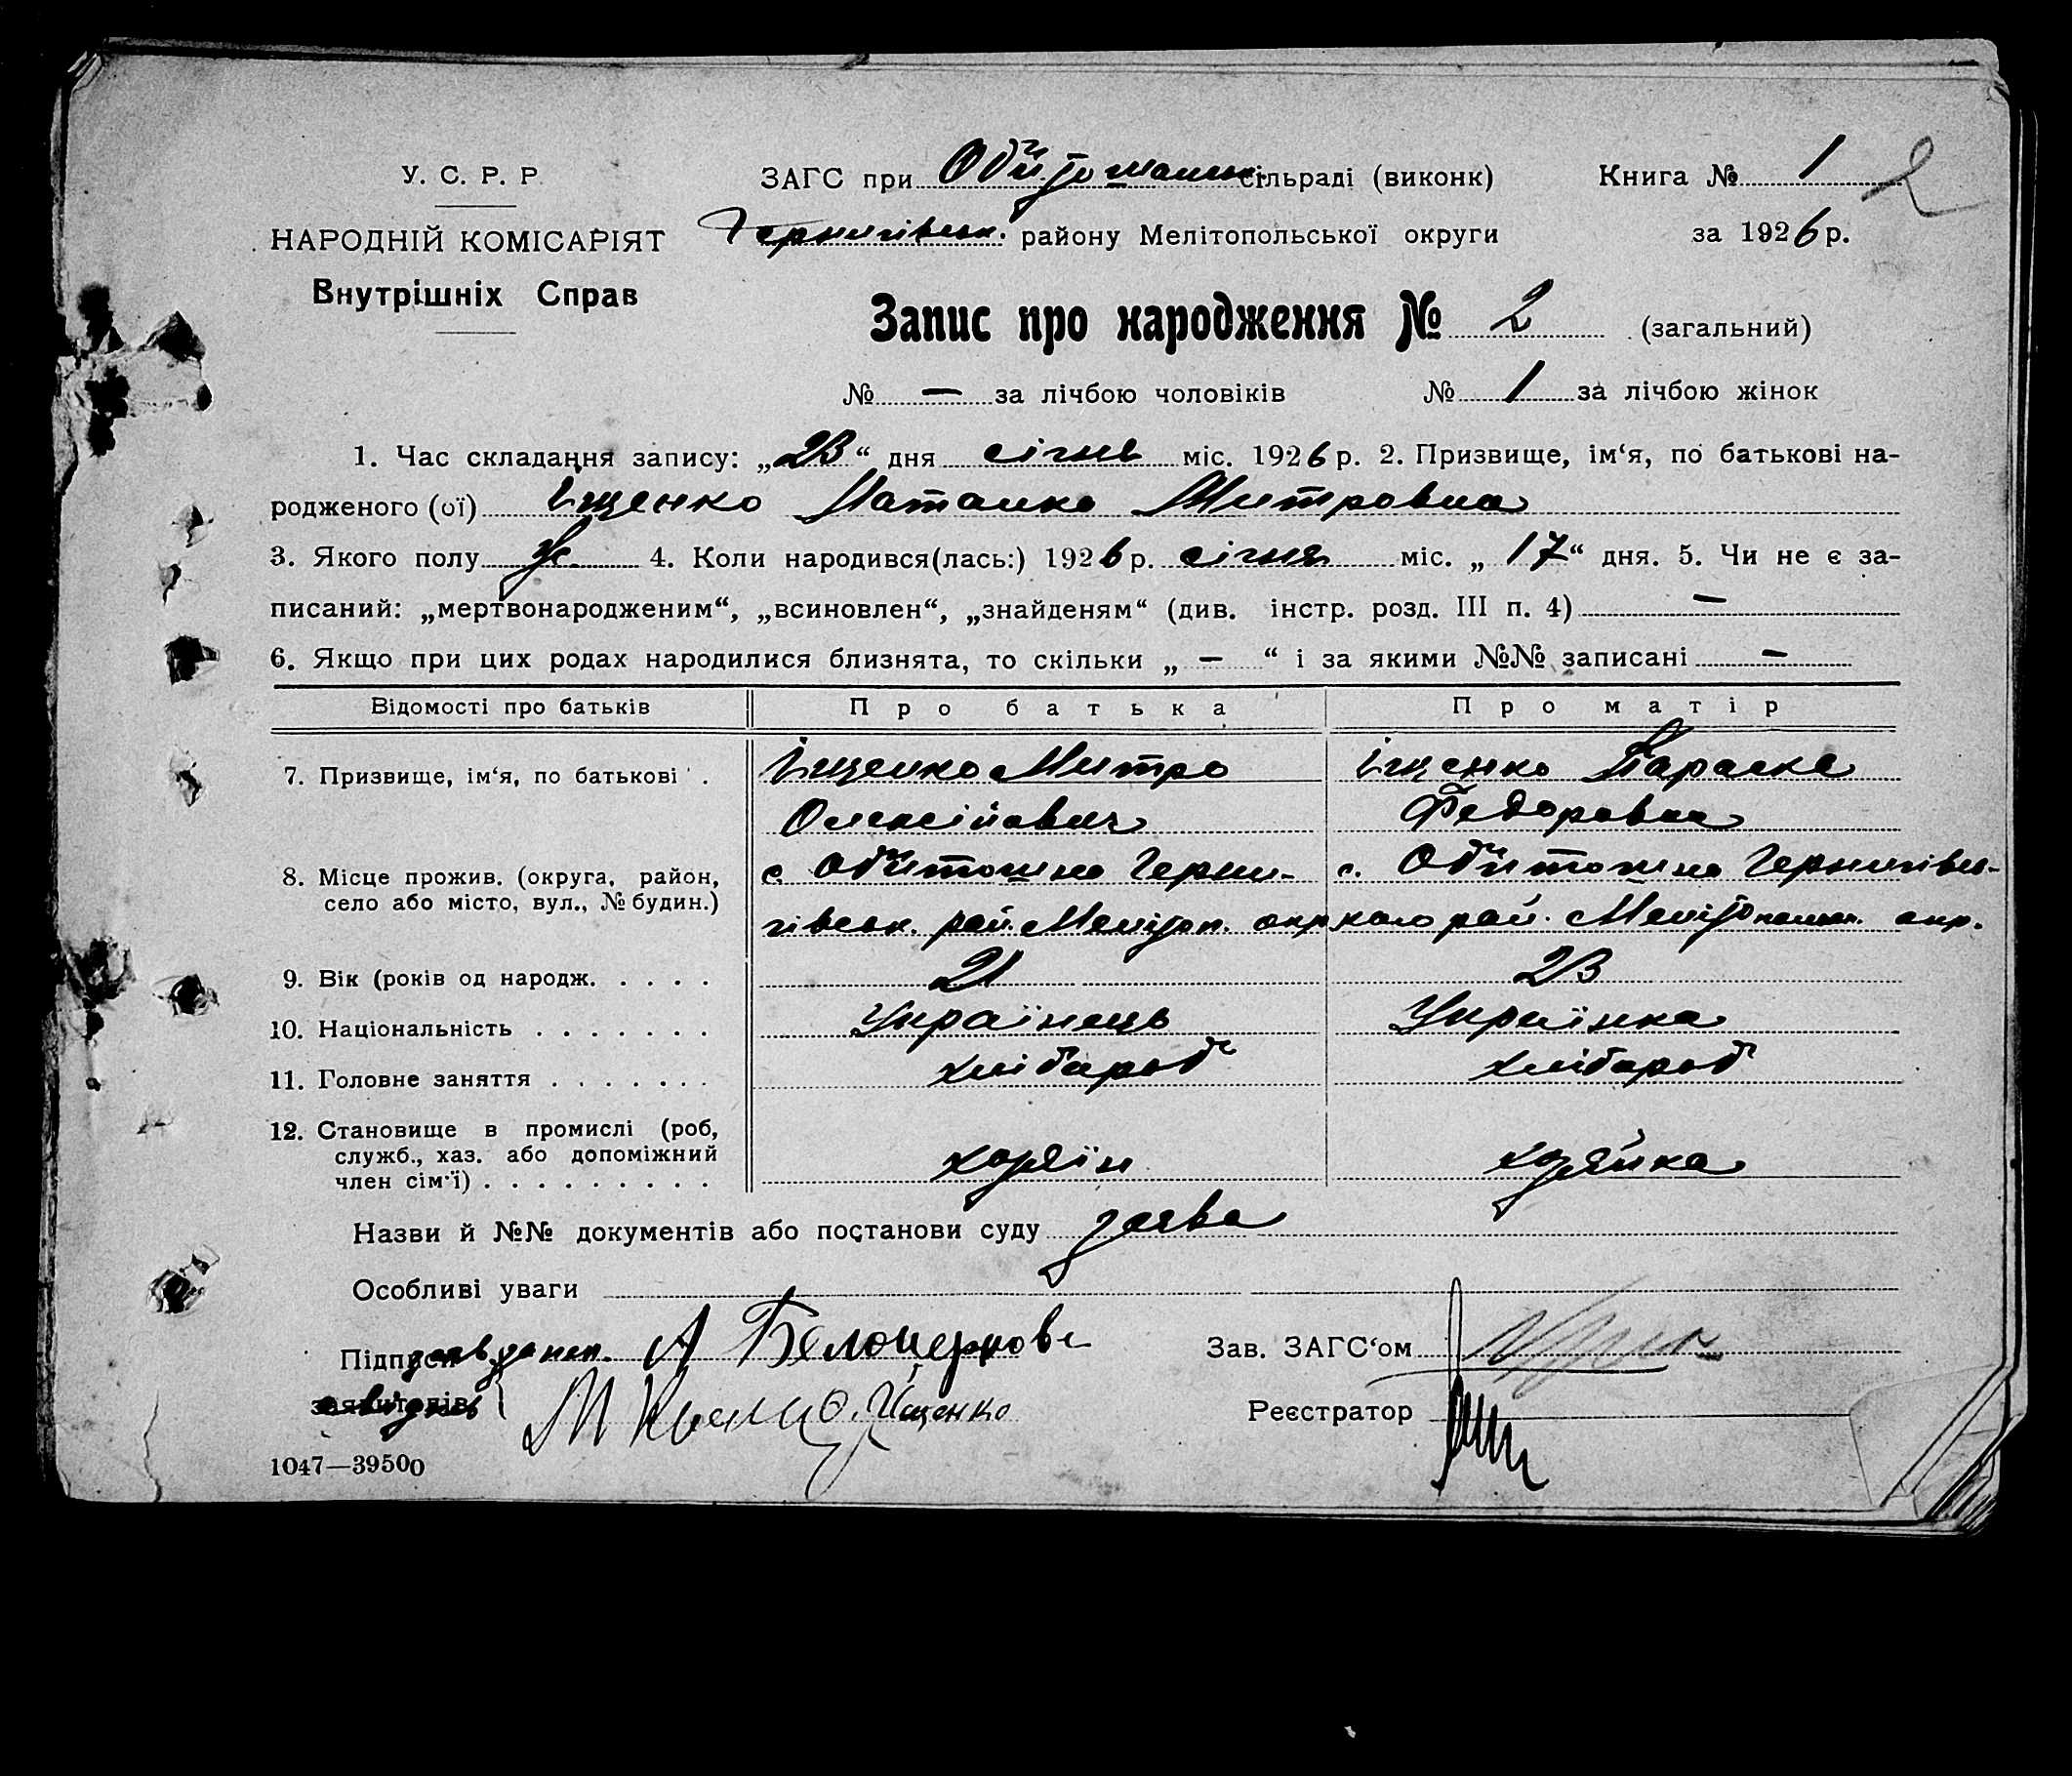 У. С. Р. Р.
НАРОДНІЙ КОМІСАРІЯТ
Внутрішніх Справ
ЗАГС при Обітошан. сільраді (виконк)
Чернигівськ. району Мелітопольської округи
Книга № 1
2
за 1926 р.
Запис про народження № 2 (загальний)
№ — за лічбою чоловіків № 1 за лічбою жінок
1. Час складання запису: „23“ дня січня міс. 1926 р. 2. Призвище, ім‘я, по батькові на-
родженого (ої) Іщенко Наталка Митровна
3. Якого полу ж. 4. Коли народився(лась:) 1926 р. січня міс. „17“ дня. 5. Чи не є за-
писаний: „мертвонародженим“, „всиновлен“, „знайденям“ (див. інстр. розд. III п. 4) —
6. Якщо при цих родах народилися близнята, то скільки „ — “ і за якими №№ записані —
Відомості про батьків Про батька Про матір
7. Призвище, ім‘я, по батькові . Іщенко Митро Іщенко Параска
Олексійович Федоровна
8. Місце прожив. (округа, район, с. Обіточна Черни- с. Обіточна Чернигівсь-
село або місто, вул., № будин.)
гівськ. рай. Меліт оп. окр. кого рай. Мелітопольск. окр.
9. Вік (років од народж. . . . . 21 23
10. Національність . . . . . . . Українець Українка
11. Головне заняття . . . . . . . хлібороб хлібороб
12. Становище в промислі (роб,
служб., хаз. або допоміжний хозяїн хозяйка
член сім‘ї) . . . . . . . . .
Назви й №№ документів або постанови суду заява
Особливі уваги
Підписи А Белоцерковс
заявителів М Іщенко
Зав. ЗАГС‘ом
Реєстратор
1047—39500